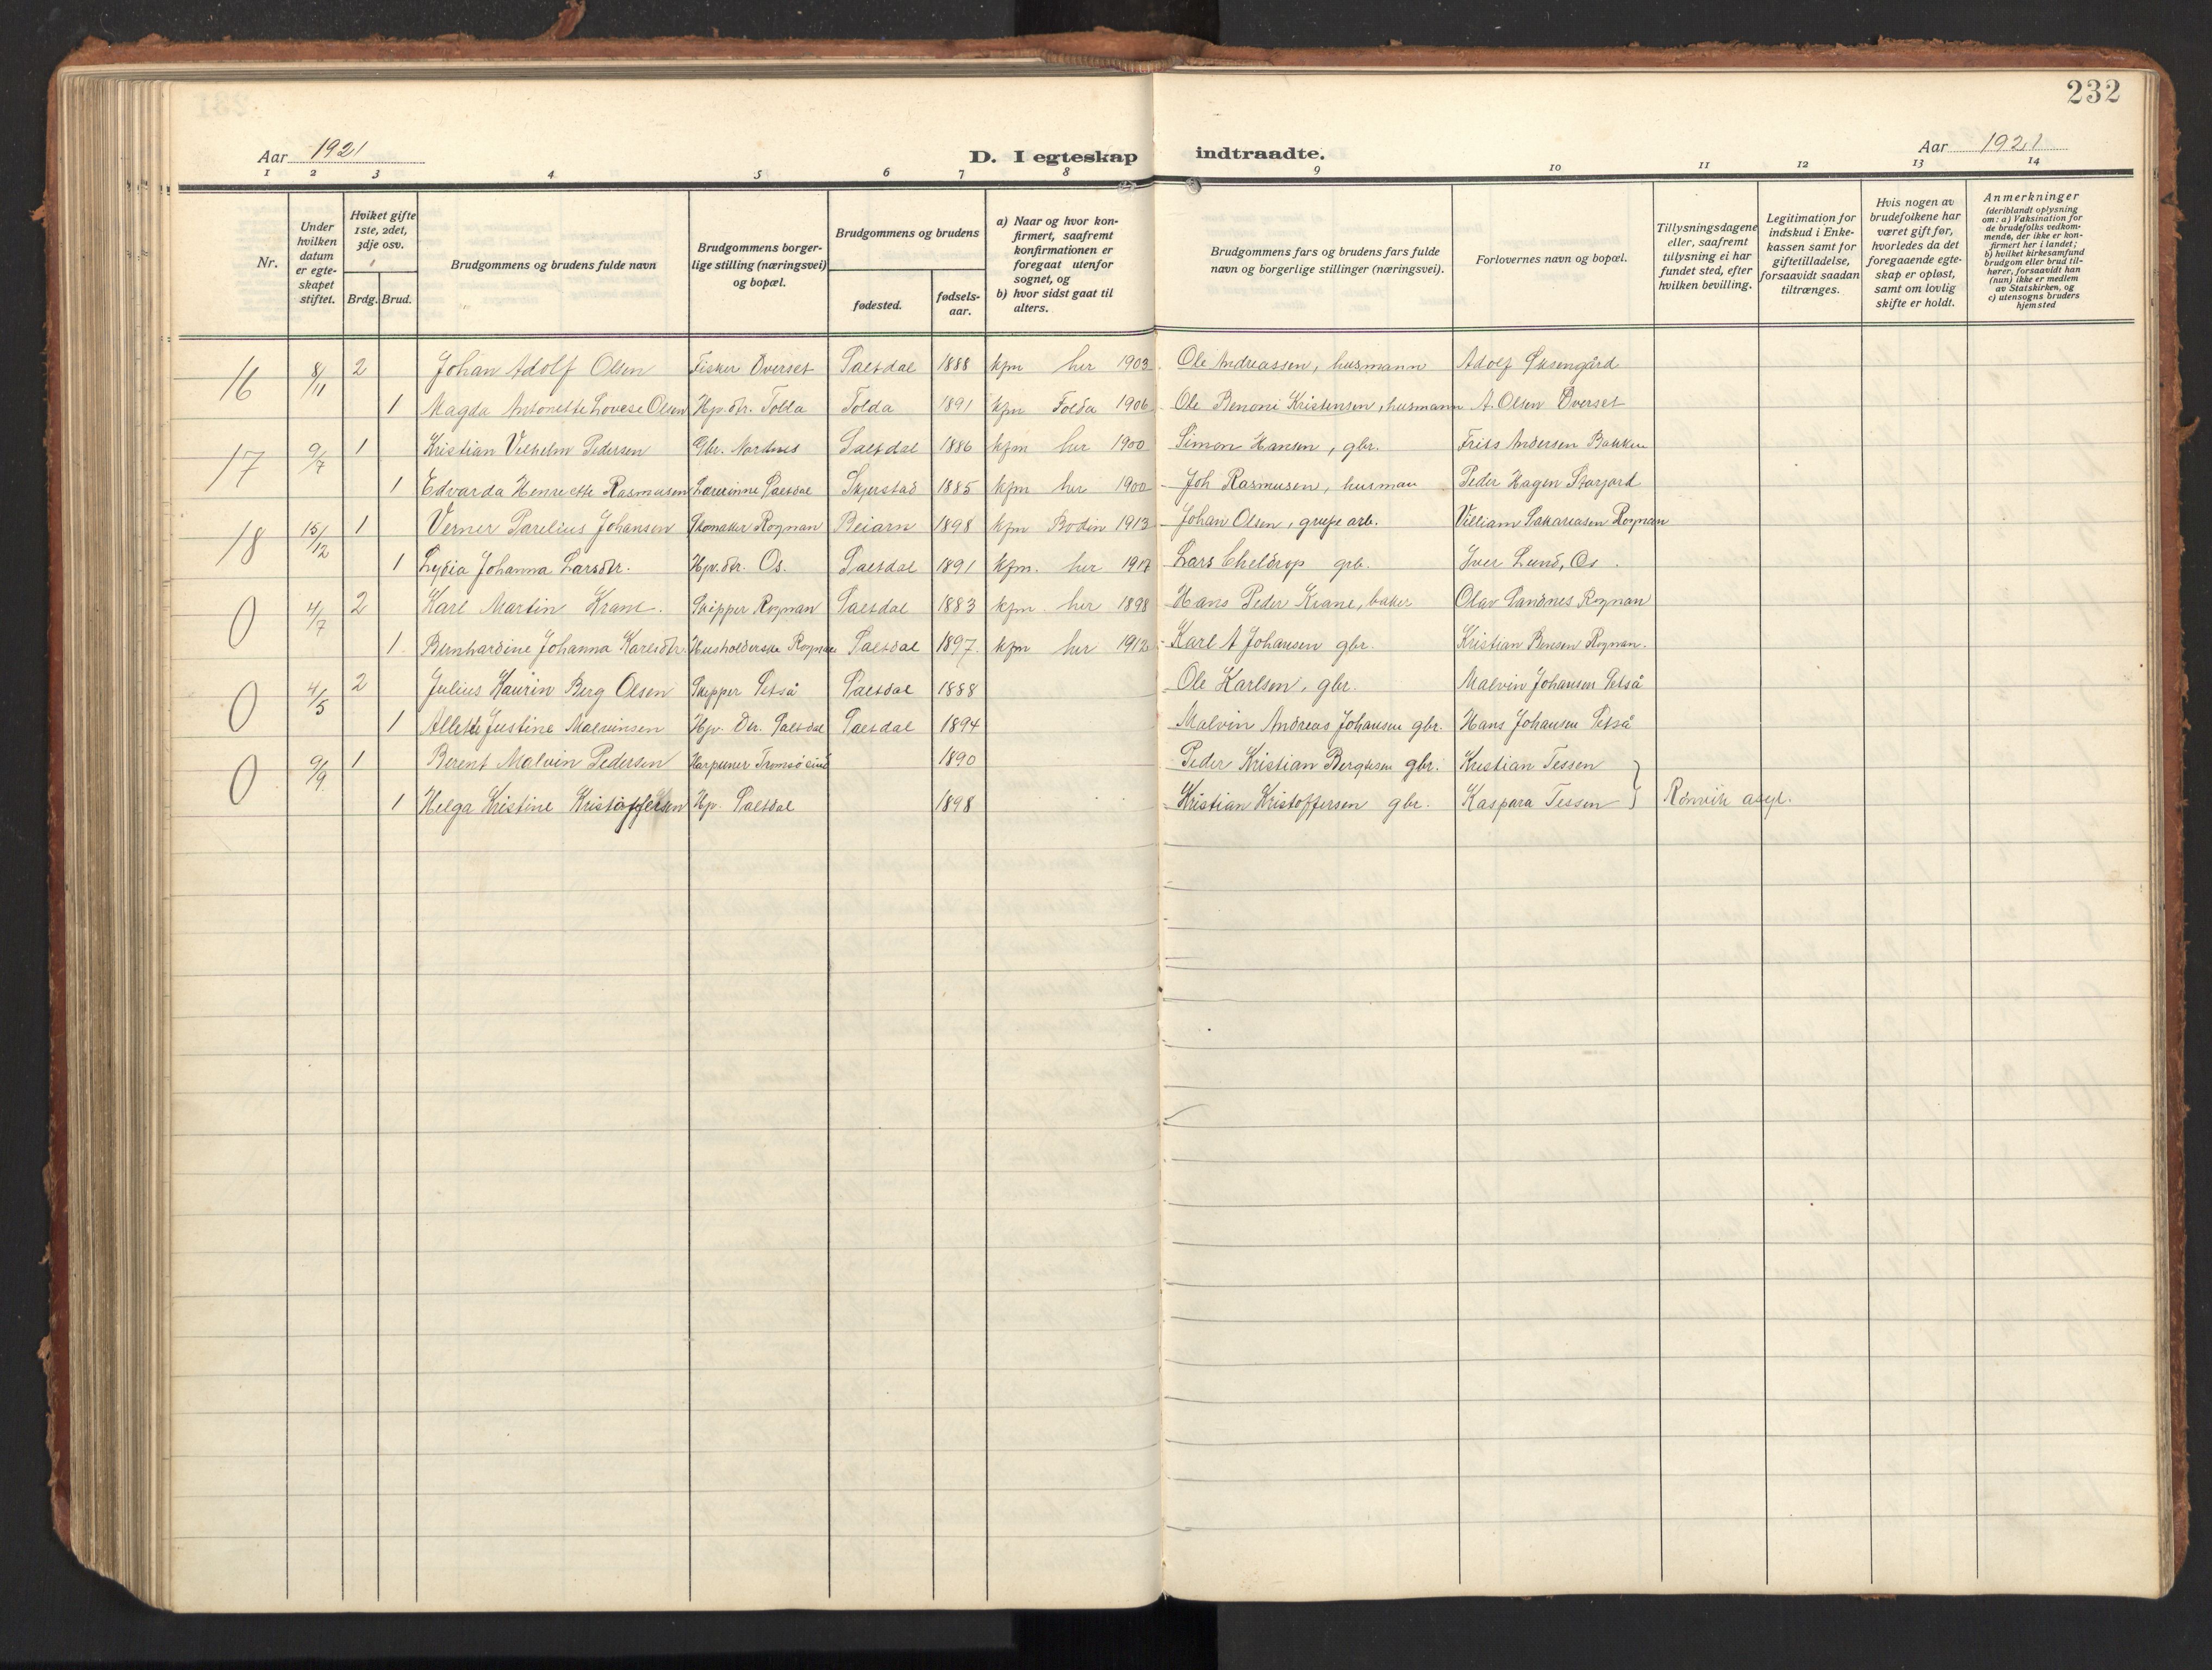 232
Aar 1921 D. I egteskap indtraadte. Aar 1921
1 2 3 4 5 6 7 8 9 10 11 12 13 14
Nr.
Under hvilken datum er egteskapet stiftet.
Hviket gifte 1ste, 2det, 3dje osv.
Brdg. Brud.
Brudgommens og brudens fulde navn
Brudgommens borgerlige stilling (næringsvei) og bopæl.
Brudgommens og brudens
fødested. fødselsaar.
a) Naar og hvor konfirmert, saafremt konfirmationen er foregaat utenfor sognet, og
b) hvor sidst gaat til alters.
Brudgommens fars og brudens fars fulde navn og borgerlige stillinger (næringsvei).
Forlovernes navn og bopæl.
Tillysningsdagene eller, saafremt tillysning ei har fundet sted, efter hvilken bevilling.
Legitimation for indskud i Enkekassen samt for giftetilladelse, forsaavidt saadan tiltrænges.
Hvis nogen av brudefolkene har været gift før, hvorledes da det foregaaende egteskap er opløst, samt om lovlig skifte er holdt.
Anmerkninger (deriblandt oplysning om: a) Vaksination for de brudefolks vedkommende, der ikke er konfirmert her i landet; b) hvilket kirkesamfund brudgom eller brud tilhører, forsaavidt han (hun) ikke er medlem av Statskirken, og c) utensogns bruders hjemsted
16 8/11 2 Johan Adolf Olsen Fisker Överset Saltdal 1888 kfm her 1903 Ole Andreassen, husmann Adolf Øksengård
1 Magda Antonette Lovise Olsen Hp. dtr. Folda Folda 1891 kfm Folda 1906 Ole Benoni Kristensen, husmann A. Olsen Överset
17 9/7 1 Kristian Vilhelm Pedersen Gbr. Nordnes Saltdal 1886 kfm her 1900 Simon Hansen, gbr. Frits Andersen Bakken
1 Edvarda Henriette Rasmusen Lærerinne Saltdal Skjerstad 1885 kfm her 1900 Joh Rasmusen, husman Peder Hagen Storjord
18 15/12 1 Verner Parelius Johansen Skomaker Rognan Beiarn 1898 kfm Bodin 1913 Johan Olsen, grube arb. Villiam Sakariasen Rognan
1 Lydia Johanna Larsdtr. Hp. dtr. Os. Saltdal 1891 kfm. her Lars Cheldrop grb. Iver Lund, Os.
0 4/7 2 Karl Martin Krane. Skipper Rognan Saltdal 1883 kfm. her 1898 Hans Peder Krane, baker Olav Sandnes Rognan
1 Bernhardine Johanna Karlsdtr. Husholderske Rognan Saltdal 1897. kfm her 1912 Karl A Johansen gbr. Kristian Bensen Rognan.
0 4/5 2 Julius Kaurin Berg Olsen Skipper Setså Saltdal 1888 Ole Karlsen, gbr. Malvin Johansen Setså
1 Allette Justine Malvinsen Hp. Dtr. Saltdal Saltdal 1894 Malvin Andreas Johansen gbr. Hans Johansen Setså
0 9/9 1 Berent Malvin Pedersen Harpuner Tromsösund 1890 Peder Kristian Bergtsen gbr. Kristian Tessen
1 Helga Kristine Kristoffersen Hp. Saltdal 1898 Kristian Kristoffersen gbr. Kaspara Tessen } Rönvik asyl.